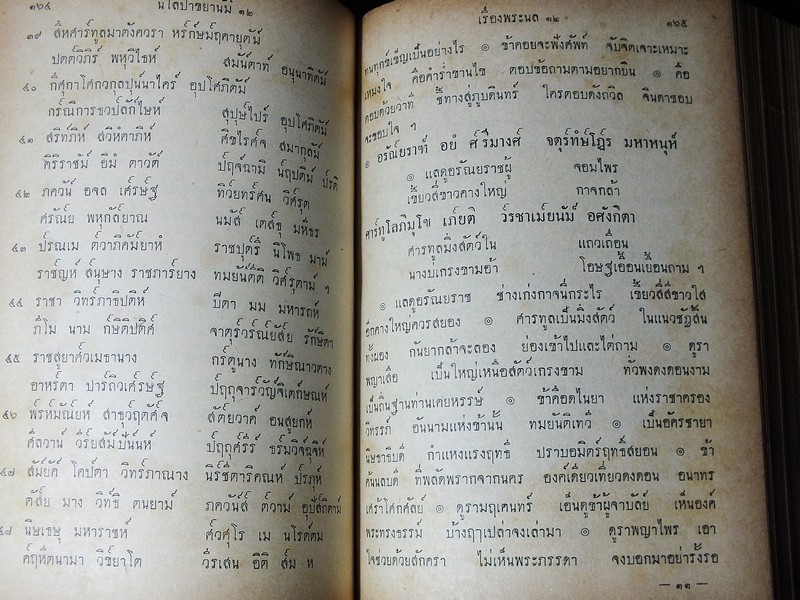 ๑๖๔ นโลปาขยานัม ๑๒
๓๙ สึหศารทูลมาตังควรา หรักษมฤคายุตัม
ปตตริภิร พหุวิไธห์ สมันตาท์ อนุนาทิตัม์
๔๐ กึศุกาโศกวกุลปุนนาไคร์ อุปโศภิตัม์
กรณิการธวปลักไษห์ สุปุษไปร์ อุปโศภิตัม์
๔๑ สริทภิห์ สวิหํคาภิห์ ศิขไรศจ สมากุลัม์
คิริราชัม์ อิมํ ตาวต์ ปฤจฉามิ นฤปติม์ ปรติ
๔๒ ภควัน์ อจล เศรษฐ ทิวยทรศน วิศรุต
ศรัณย พหุกัลยาณ นมัส์ เตสตุ มหีธร
๔๓ ปรณเม ตวาภิคัมยาหํ ราชปุตรี นิโพธ มาม์
ราชญห์ สนุษาง ราชภารยาง ทมยันตีติ วิศรุตาม์ ฯ
๔๔ ราชา วิทรภาธิปติห์ ปิตา มม มหารถห์
ภีโม นาม กษิติปติศ์ จาตุรวรณยสย รักษิตา
๔๕ ราชสูยาศวเมธานาง กรตูนาง ทักษิณาวตาง
อาหรตา ปารถิวเศรษฐ ปฤถุจารวัญจิเตกษณห์
๔๖ พรหมัณยห์ สาธุวฤตศจ สัตยวาค์ อนสูยกห์
ศีลวาน์ วีรยสัมปันนห์ ปฤถุศรีร์ ธรมวิจฉุจิห์
๔๗ สัมยัค์ โคปตา วิทรภาณาง นิรชิตาริคณห์ ปรภุห์
ตัสย มาง วิทธิ ตนยาม์ ภควันส์ ตวาม์ อุปสถิตาม์
๔๘ นิษเธษุ มหาราชห์ ศวศุโร เม นโรตตม
คฤหีตนามา วิขยาโต วีรเสน อิติ สม ห
เรื่องพระนล ๑๒ ๑๖๕
ทนทุกข์เข็ญเป็นอย่างไร ๏ ข้าคอยจะฟังศัพท์ จับจิตเจาะเหมาะ
เหมงใจ คือคำร่ำขานไข ตอบข้อถามตามอยากยิน ๏ คือ
ตอบด้วยวาที ชี้ทางสู่ภูบดินทร์ ใครตอบดังถวิล จินดาชอบ
จะชอบใจ ฯ
๏ อรัณยราฑ์ อยํ ศรีมางศ์ จตุรทํษโฏร มหาหนุห์
๏ แลดูอรัณยราชผู้ จอมไพร
เขี้ยวสี่ขาวคางใหญ่ กาจกล้า
ศารทูโลภิมุโข เภยติ วรชาเมยนัม์ อศังกิตา
ศารทูลมิ่งสัตว์ใน แถวเถื่อน
นางบ่เกรงขามอ้า โอษฐเอื้อนเยื้อนถาม ฯ
๏ แลดูอรัณยราช ช่างเก่งกาจนี่กระไร เขี้ยวสี่สีขาวใส
อีกคางใหญ่ควรสยอง ๏ ศารทูลเป็นมิ่งสัตว์ ในแนวชัฏสิ้น
ทั้งผอง กันยากล้าจะลอง ย่องเข้าไปและไต่ถาม ๏ ดูรา
พญาเสือ เป็นใหญ่เหนือสัตว์เกรงขาม ทั่วพงดงดอนงาม
เป็นถิ่นฐานท่านเคยหรรษ์ ๏ ข้าคือดไนยา แห่งราชาครอง
วิทรรภ์ อนนามแห่งข้านั้น ทมยันติเทวี ๏ เป็นอัครชายา
นิษธาธิบดี กำแหงแรงฤทธี ปราบอมิตร์ฤทธิ์สยอน ๏ ข้า
ค้นนลบดี ที่พลัดพรากจากนคร องค์เดี่ยวเที่ยวดงดอน อนาทร
เศร้าโศกศัลย์ ๏ ดูรามฤเคนทร์ เอ็นดูข้าผู้จาบัลย์ เห็นองค์
พระทรงธรรม์ บ้างฤๅเปล่าจงเล่ามา ๏ ดูราพญาไพร เอา
ใจช่วยด้วยสักครา ไม่เห็นพระภรรดา จงบอกมาอย่ารั้งรอ
— ๑๑ —